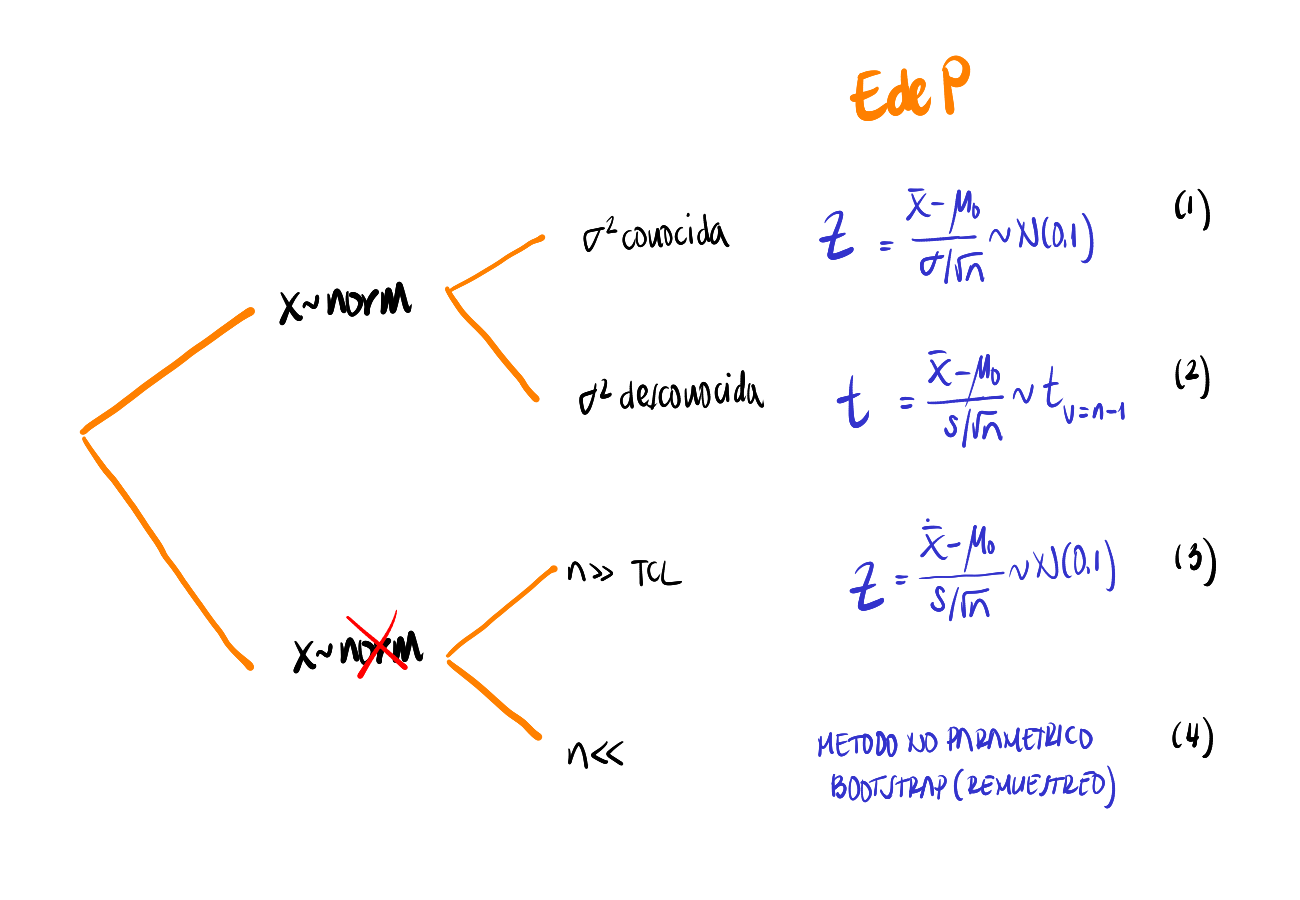 EdeP
X~norm
σ² conocida
Z = (x̄ - μ₀)/(σ/√n) ~ N(0,1)
(1)
σ² desconocida
t = (x̄ - μ₀)/(s/√n) ~ t v=n-1
(2)
X~norm
n>> TCL
Z = (x̄ - μ₀)/(s/√n) ~ N(0,1)
(3)
n<<
METODO NO PARAMETRICO
BOOTSTRAP (REMUESTREO)
(4)